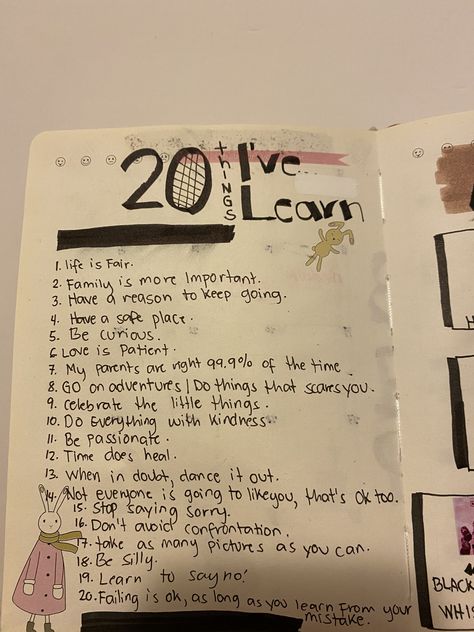 20 things I've...
Learn
1. life is Fair.
2. Family is more Important.
3. Have a reason to keep going.
4. Have a safe place.
5. Be curious.
6. Love is Patient.
7. My parents are right 99.9% of the time.
8. GO on adventures / Do things that scares you.
9. celebrate the little things.
10. Do Everything with Kindness.
11. Be passionate.
12. Time does heal.
13. When in doubt, dance it out.
14. Not everyone is going to like you, that's ok too.
15. Stop saying sorry.
16. Don't avoid confrontation.
17. take as many pictures as you can.
18. Be silly.
19. Learn to say no!
20. Failing is ok, as long as you learn From your
mistake.
BLACK
WHIS